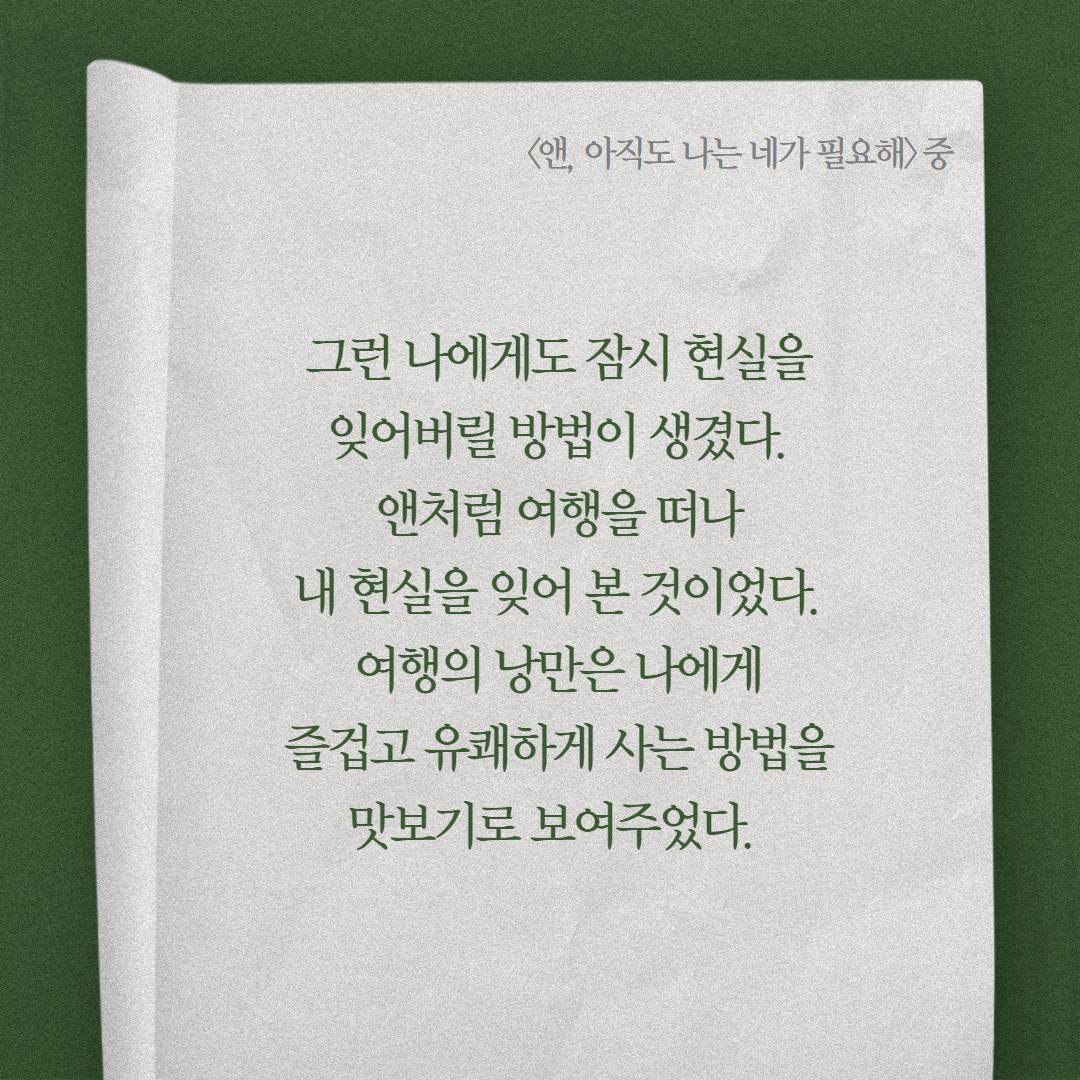 <앤, 아직도 나는 네가 필요해> 중
그런 나에게도 잠시 현실을
잊어버릴 방법이 생겼다.
앤처럼 여행을 떠나
내 현실을 잊어 본 것이었다.
여행의 낭만은 나에게
즐겁고 유쾌하게 사는 방법을
맛보기로 보여주었다.